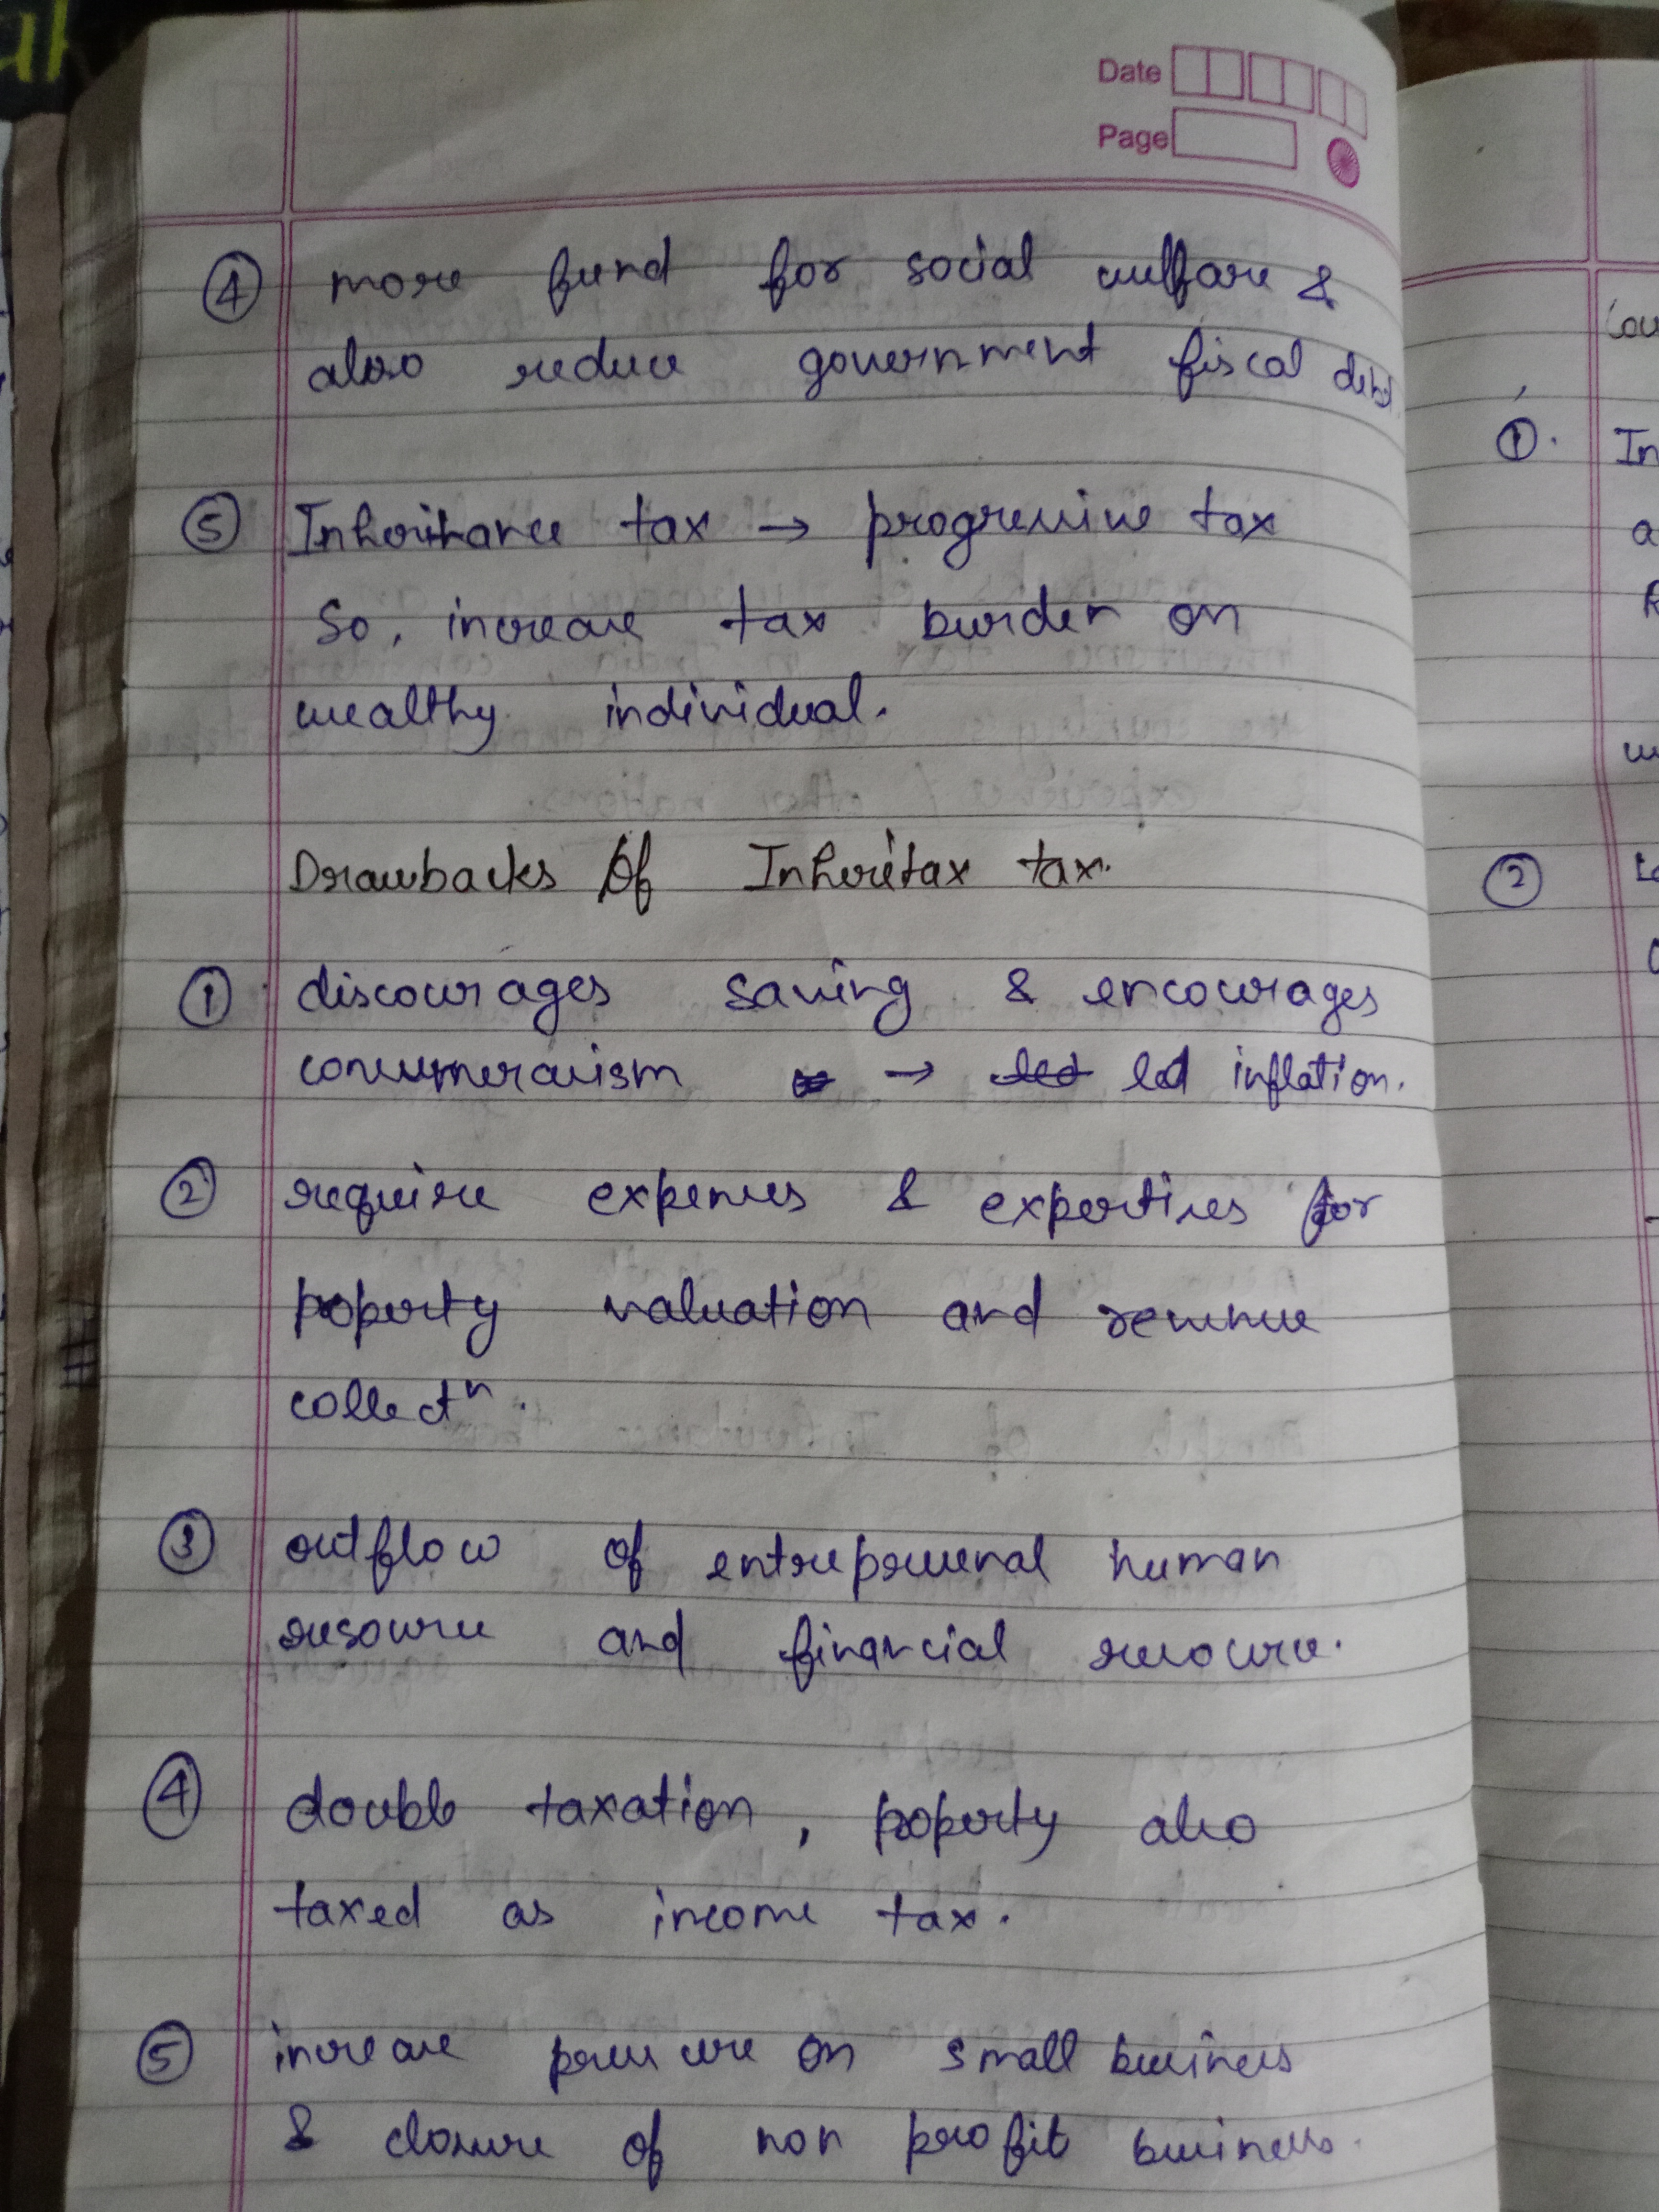 Date
Page
④ more fund for social welfare &
also reduce government fiscal debt
⑤ Inheritance tax → progressive tax
So, increase tax burden on
wealthy individual.
Drawbacks Of Inheritax tax.
① discourages saving & encourages
consumeraism → led led inflation.
② require expenses & expertises for
poperty valuation and revenue
collectⁿ.
③ outflow of entreprenenal human
resource and financial resource.
④ double taxation, poperty also
taxed as income tax.
⑤ increase pressure on small business
& closure of non profit business.
①. In
②